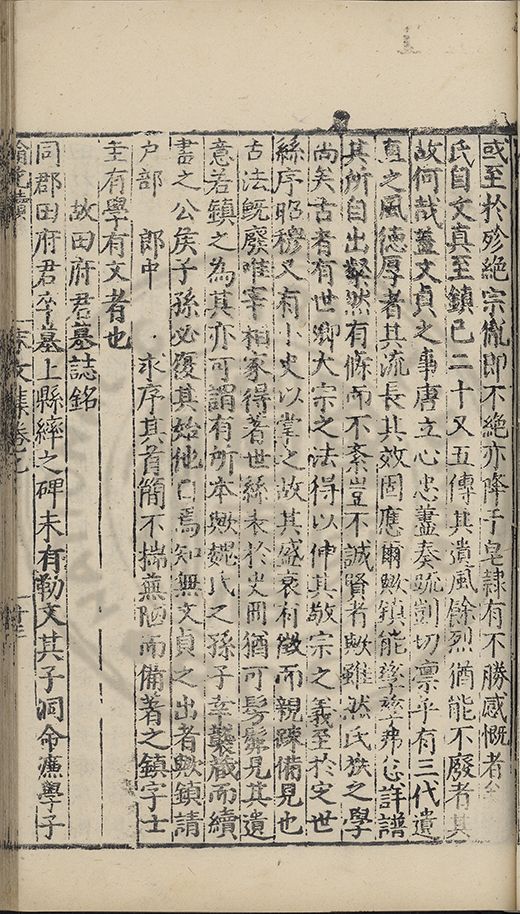 或至於殄絕宗胤即不絕亦降于皂隸有不勝感慨者
氏自文真至鎮已二十又五傳其遺風餘烈猶能不廢者其
故何哉蓋文貞之事唐立心忠藎奏疏剴切凛乎有三代遺
直之風德厚者其流長其效固應爾歟鎮能孳孳弗忘詳譜
其所自出粲然有條而不紊豈不誠賢者歟雖然氏族之學
尚矣古者有世卿大宗之法得以伸其敬宗之義至於定世
系序昭穆又有卜史以掌之故其盛衰有徵而親踈備見也
古法旣廢唯宰相家得著世系表於史冊猶可髣髴見其遺
意若鎮之為其亦可謂有所本歟魏氏之孫子幸襲藏而續
書之公侯子孫必復其始他日焉知無文貞之出者歟鎮請
戶部 郎中 求序其首簡不揣蕪陋而備著之鎮字士
主有學有文者也
故田府君墓誌銘
同郡田府君卒墓上縣繂之碑未有勒文其子洞命濂學子